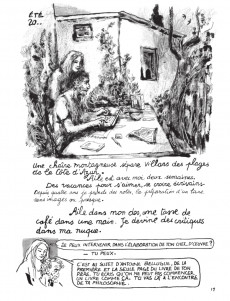 ÉTÉ
20..
Une chaîne montagneuse sépare Villars des plages
de la Côte d'Azur.
Aïle est avec moi, deux semaines.
Des vacances pour s'aimer, se croire écrivains.
Depuis quatre ans je prends des notes, la préparation d'un livre
sans images ou presque.
Aïle dans mon dos, une tasse de
café dans une main. Je devine des critiques
dans ma nuque.
JE PEUX INTERVENIR DANS L'ÉLABORATION DE TON CHEF-D'ŒUVRE ?
— TU PEUX.
C'EST AU SUJET D'ANTOINE BELLUGUE, DE LA
PREMIÈRE ET LA SEULE PAGE DU LIVRE DE TON
PÈRE. TU ÉCRIS QU'ON NE PEUT PAS COMMENCER
UN LIVRE COMME ÇA. TU VAS LÀ À L'ENCONTRE
DE TE PHILOSOPHIE...